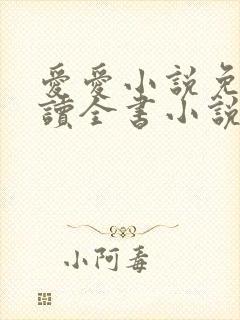 愛愛小説免
讀全書小說
小阿毒